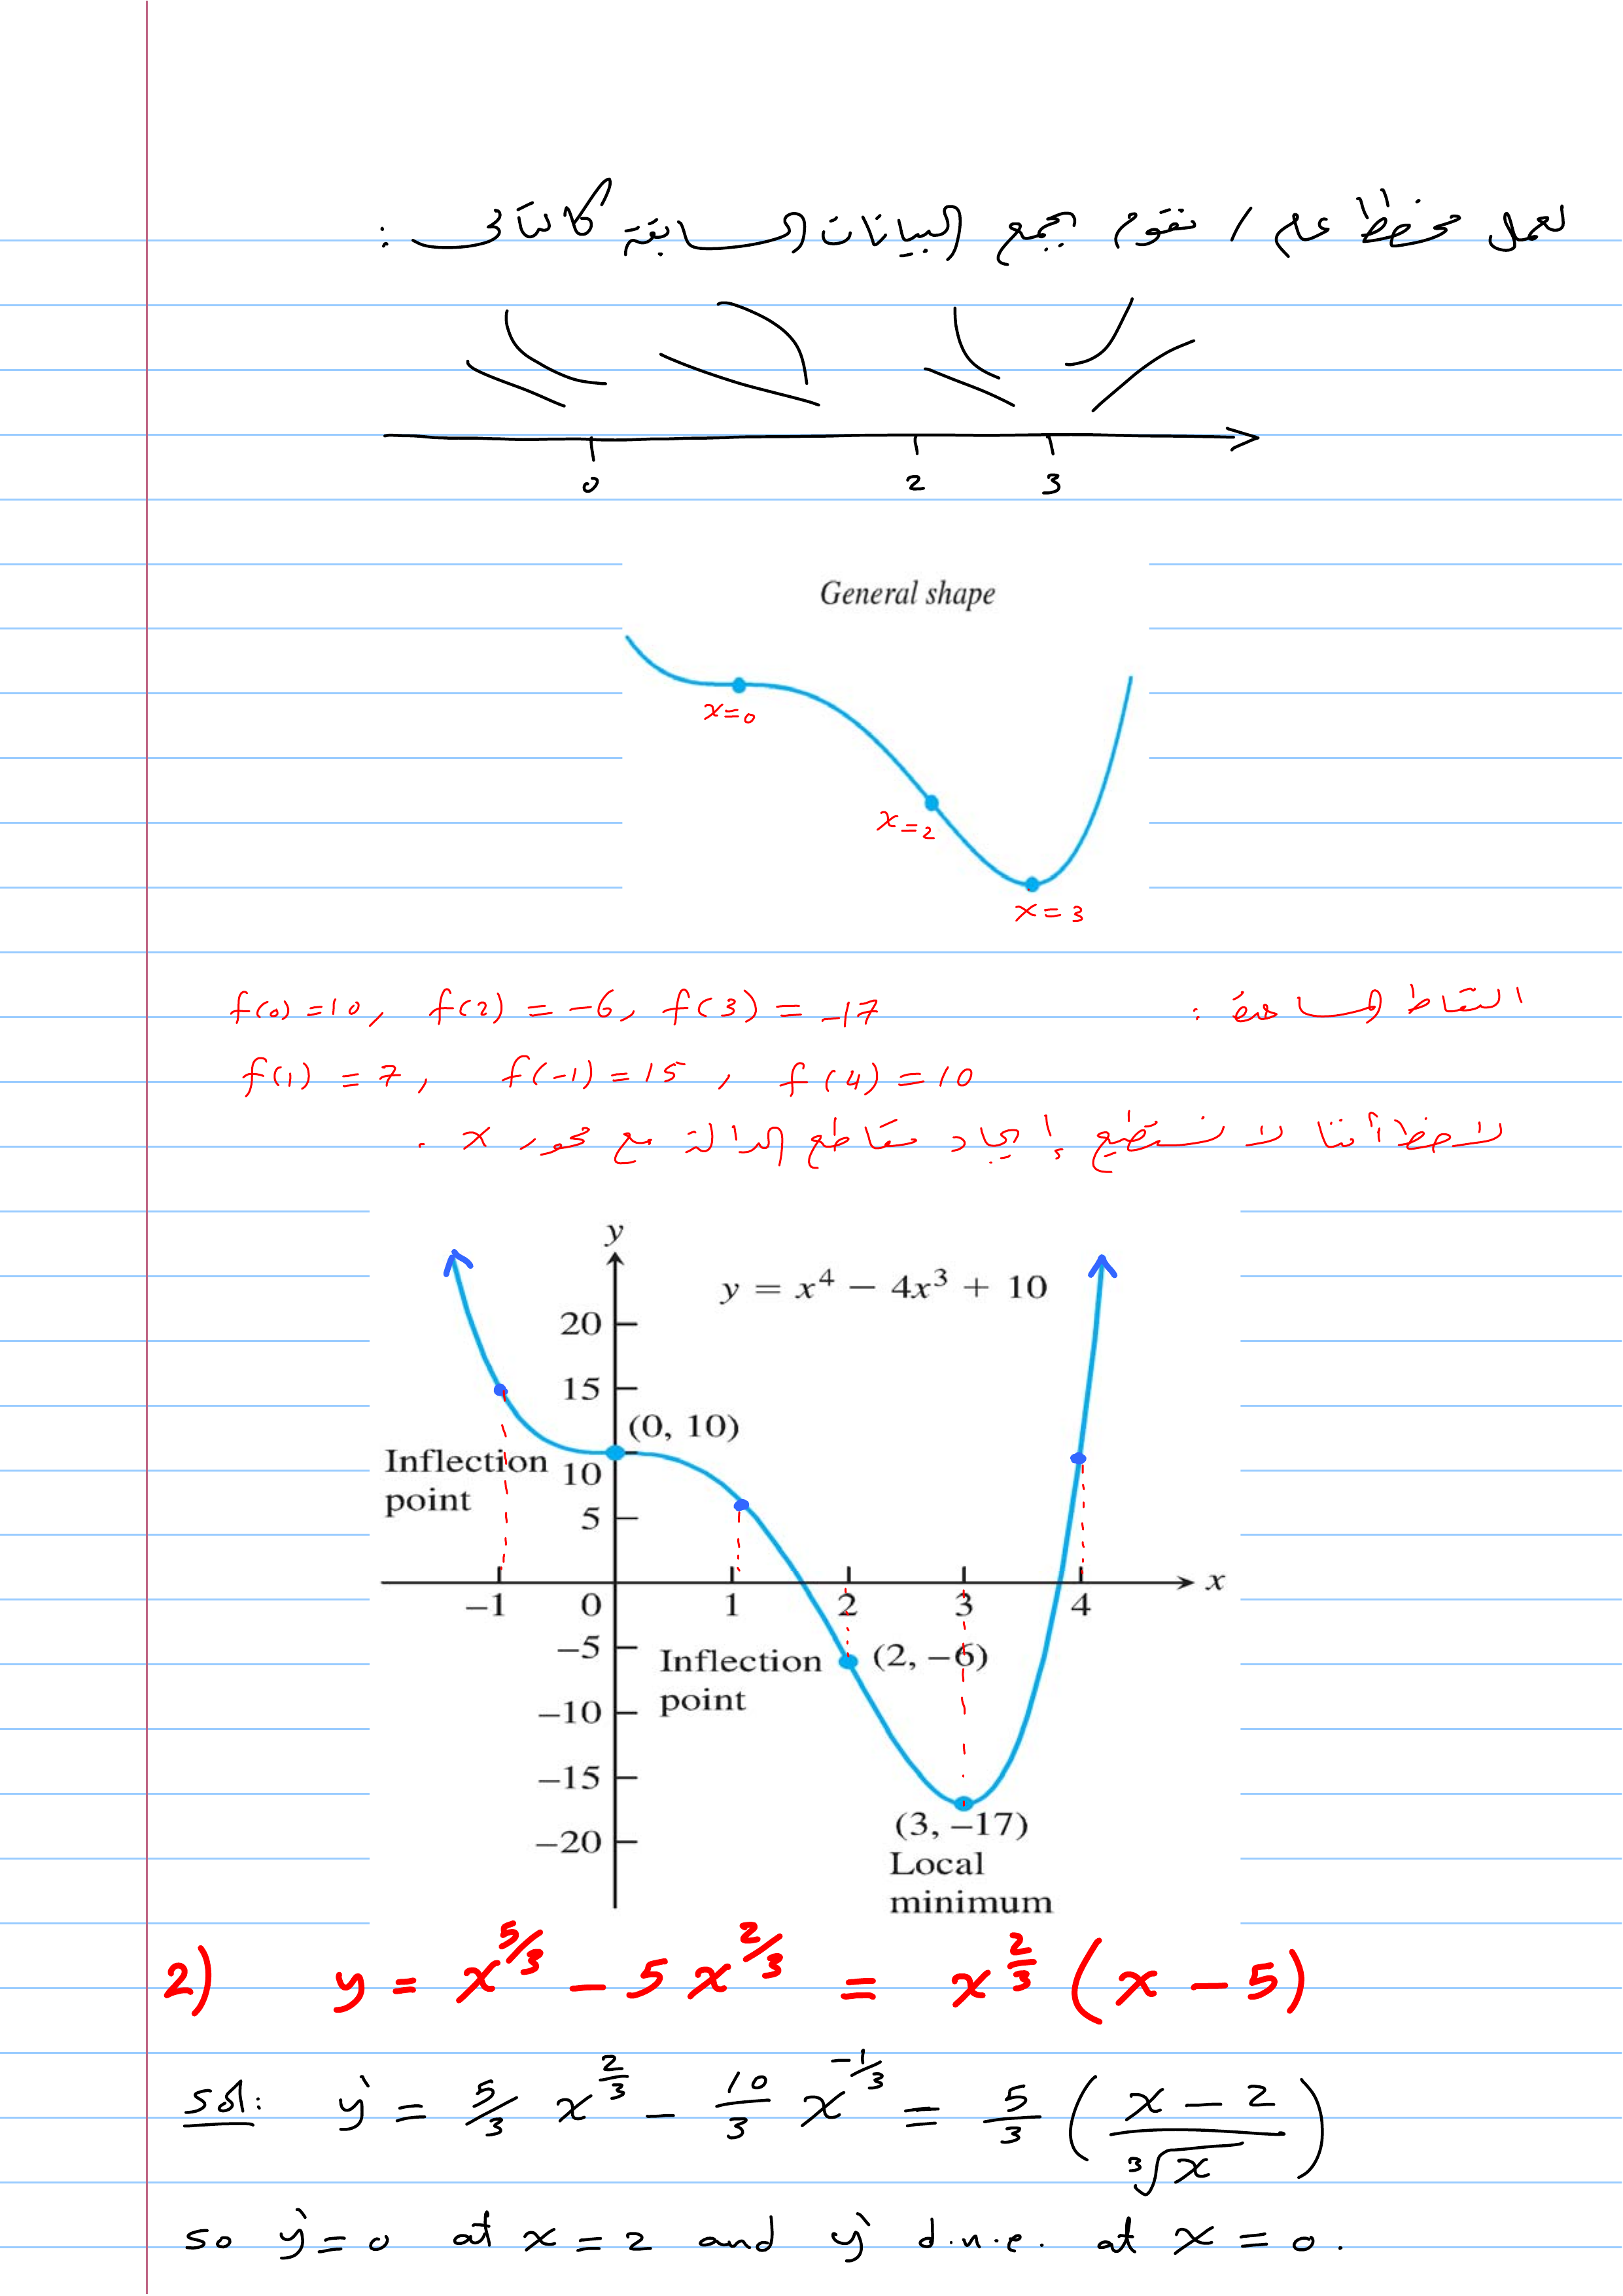 لعمل مخطط عام / نقوم بجمع البيانات السابقة كالتالي :
0 2 3
General shape
x=0
x=2
x=3
النقاط المساعدة : f(0)=10, f(2)=-6, f(3)=-17
f(1)=7, f(-1)=15, f(4)=10
لاحظ أننا لا نستطيع إيجاد مقاطع الدالة مع محور x .
y
y = x⁴ − 4x³ + 10
20
15
(0, 10)
Inflection point
10
5
−1 0 1 2 3 4 x
−5
Inflection point
(2, −6)
−10
−15
(3, −17)
−20
Local minimum
2) y = x^{5/3} - 5x^{2/3} = x^{2/3} (x - 5)
sol: y' = 5/3 x^{2/3} - 10/3 x^{-1/3} = 5/3 ((x - 2)/∛x)
so y'=0 at x=2 and y' d.n.e. at x=0.